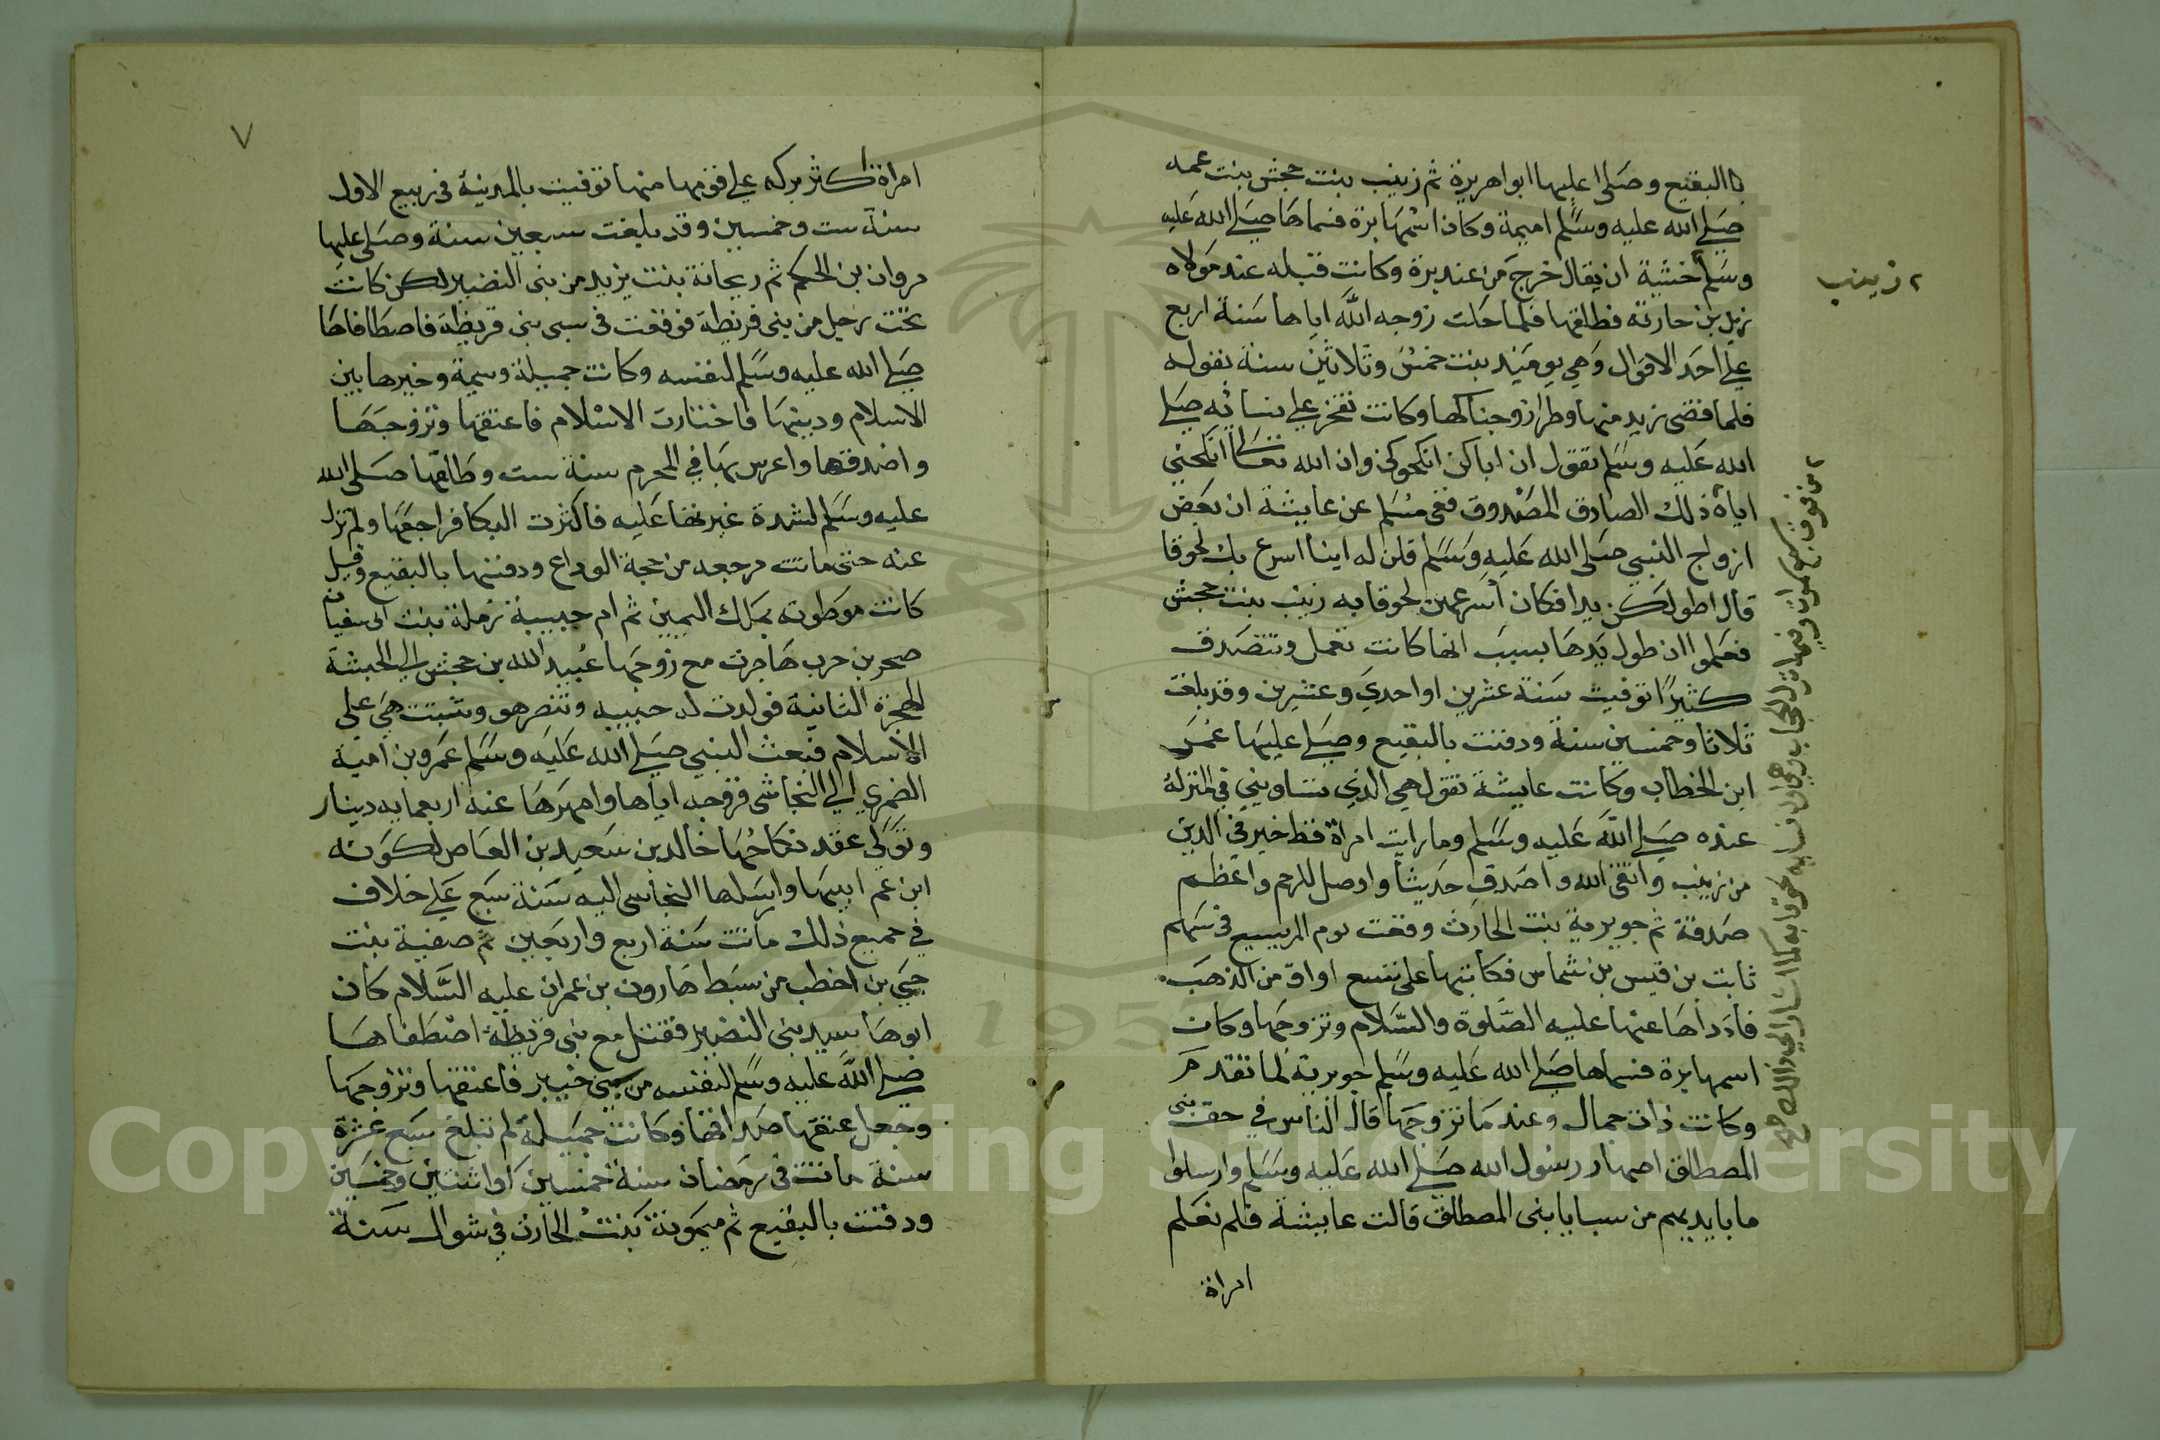 بالبقيع وصلى عليها ابو هريرة ثم زينب بنت جحش بنت عمه
صلى الله عليه وسلم اميمة وكان اسمها برة فسماها صلى الله عليه
وسلم خشية ان يقال خرج من عند برة وكانت قبله عند مولاه
زيد بن حارثة فطلقها فلما حلت زوجه الله اياها سنة اربع
على احد الاقوال وهي يوميذ بنت خمس وثلاثين سنة بقوله
فلما قضى زيد منها وطرا زوجناكها وكانت تفخر على نسائه صلى
الله عليه وسلم تقول ان اباكن انكحوكن وان الله تعالى انكحني
اياه ذلك الصادق المصدوق ففي مسلم عن عايشة ان بعض
ازواج النبي صلى الله عليه وسلم قلن له اينا اسرع بك لحوقا
قال اطولكن يدا فكان اسرعهن لحوقا به زينب بنت جحش
فعلموا ان طول يدها بسبب انها كانت تعمل وتتصدق
كثيرا توفيت سنة عشرين او احدي وعشرين وقد بلغت
ثلاثا وخمسين سنة ودفنت بالبقيع وصلى عليها عمر
ابن الخطاب وكانت عايشة تقول هي الذي تساويني في المنزلة
عنده صلى الله عليه وسلم وما رايت امراة قط خير في الدين
من زينب واتقى الله واصدق حديثا واوصل للرحم واعظم
صدقة ثم جويرية بنت الحارث وقعت يوم المريسيع في سهم
ثابت بن قيس بن شماس فكاتبها على تسع اواق من الذهب
فاداها عنها عليه الصلوة والسلام وتزوجها وكان
اسمها برة فسماها صلى الله عليه وسلم جويرية لما تقدم
وكانت ذات جمال وعند ما تزوجها قال الناس في حق بني
المصطلق اصهار رسول الله صلى الله عليه وسلم وارسلوا
ما بايديهم من سبايا بني المصطلق قالت عايشة فلم نعلم
امراة
زينب
٧
امراة اكثر بركه على قومها منها توفيت بالمدينة في ربيع الاول
سنة ست وخمسين وقد بلغت سبعين سنة وصلى عليها
مروان بن الحكم ثم ريحانة بنت يزيد من بني النضير لكن كانت
تحت رجل من بني قريظة فوقعت في سبي بني قريظة فاصطفاها
صلى الله عليه وسلم لنفسه وكانت جميلة وسيمة وخيرها بين
الاسلام ودينها فاختارت الاسلام فاعتقها وتزوجها
واصدقها واعرس بها في المحرم سنة ست وطلقها صلى الله
عليه وسلم لشدة غيرتها عليه فاكثرت البكا فراجعها ولم تزل
عنه حتى ماتت مرجعه من حجة الوداع ودفنها بالبقيع وقيل
كانت موطوته بملك اليمين ثم ام حبيبة رملة بنت ابي سفيان
صخر بن حرب هاجرت مع زوجها عبيد الله بن جحش الى الحبشة
الهجرة الثانية فولدت له حبيبه وتنصر هو وثبتت هي على
الاسلام فبعث النبي صلى الله عليه وسلم عمرو بن امية
الضمري الى النجاشى فزوجه اياها وامهرها عنه اربعمايه دينار
وتولى عقد نكاحها خالد بن سعيد بن العاص لكونه
ابن عم ابيها وارسلها النجاسى اليه سنة سبع على خلاف
في جميع ذلك ماتت سنة اربع واربعين ثم صفية بنت
حيي بن اخطب من سبط هارون بن عمران عليه السلام كان
ابوها سيد بني النضير فقتل مع بني قريظة اصطفاها
صلى الله عليه وسلم لنفسه من سبي خيبر فاعتقها وتزوجها
وجعل عتقها صداقها وكانت جميلة لم تبلغ سبع عشرة
سنة ماتت في رمضان سنة خمسين او اثنتين وخمسين
ودفنت بالبقيع ثم ميمونة بنت الحارث في شوال سنة
Copyright © King Saud University
195